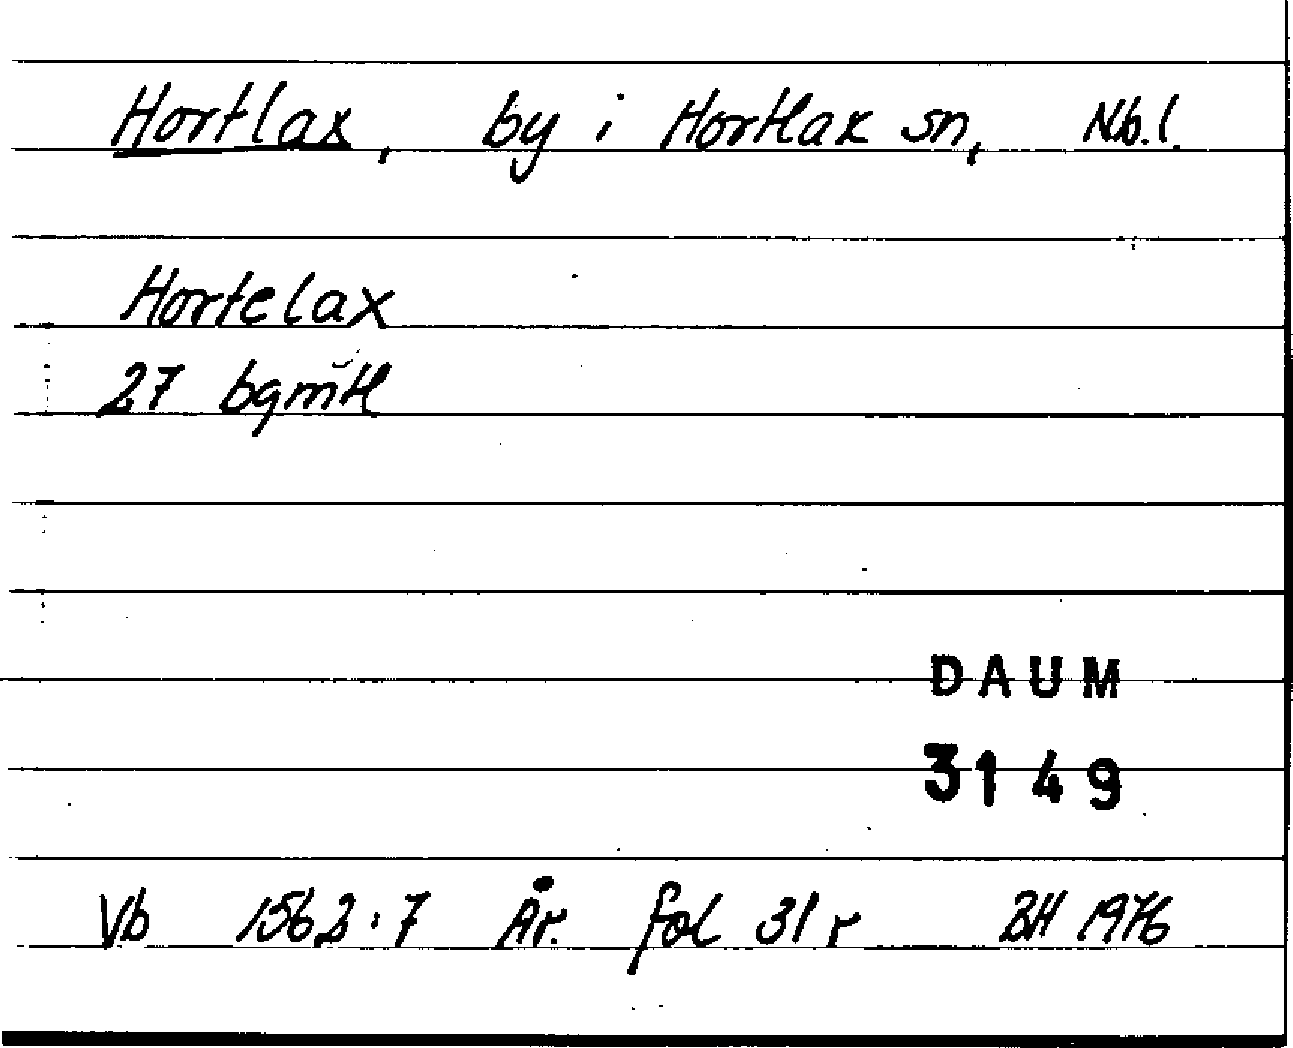 Hortlax, by i Hortlax sn, Nb.l.
Hortelax
27 bgmtl
DAUM
3149
Vb 1562:7 År. fol 31 r BH 1976